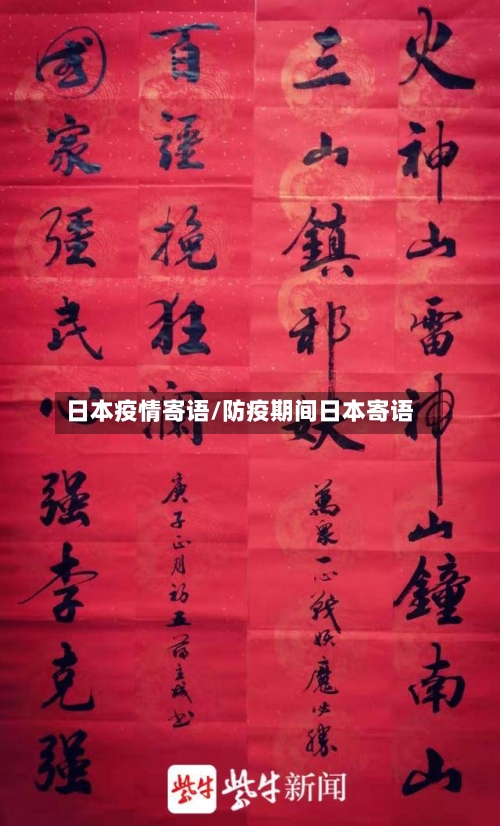 火神山雷神山鐘南山
三山鎮邪妖
萬眾一心戰妖魔必勝
百挽狂澜
庚子正月初五書
國家强民心强李克强
日本疫情寄语/防疫期间日本寄语
紫牛 紫牛新闻